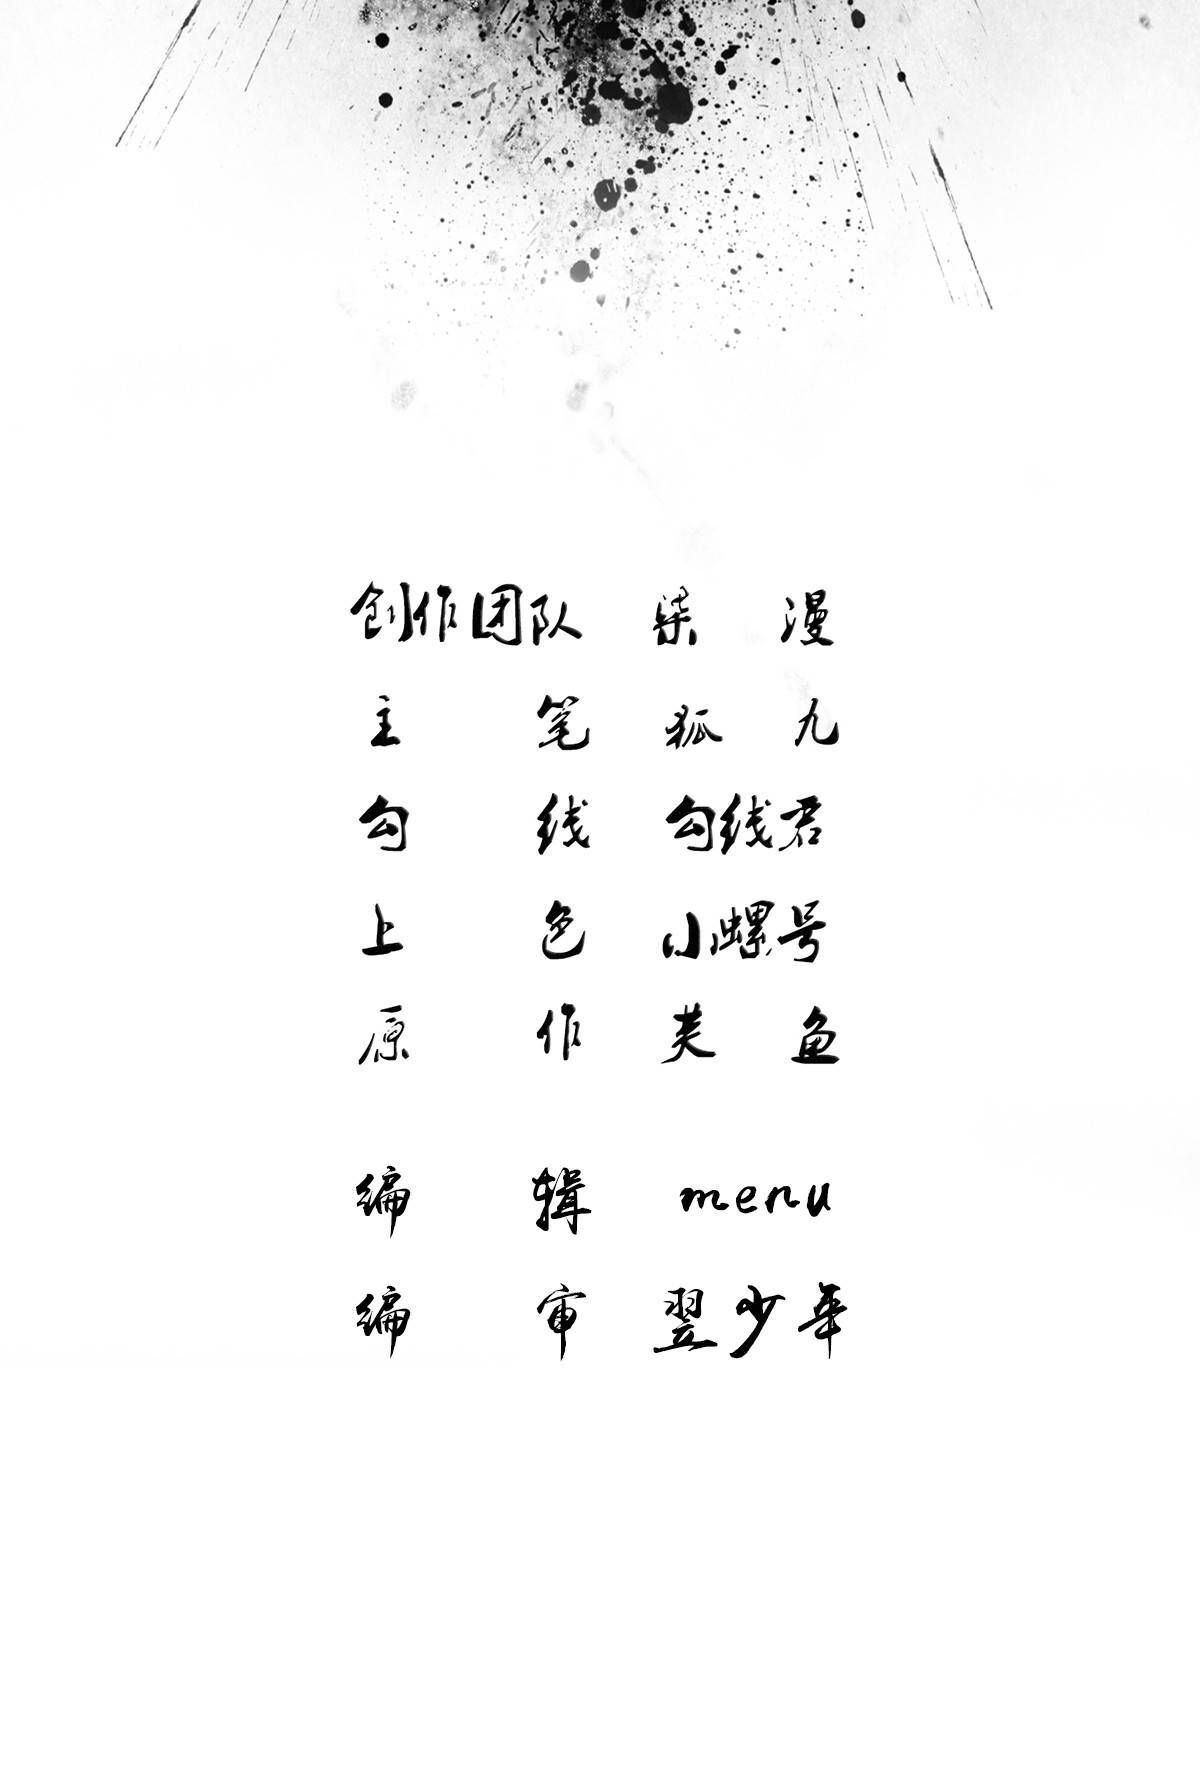 创作团队 柒漫
主笔 狐九
勾线 勾线君
上色 小螺号
原作 芙鱼
编辑 menu
编审 翌少年